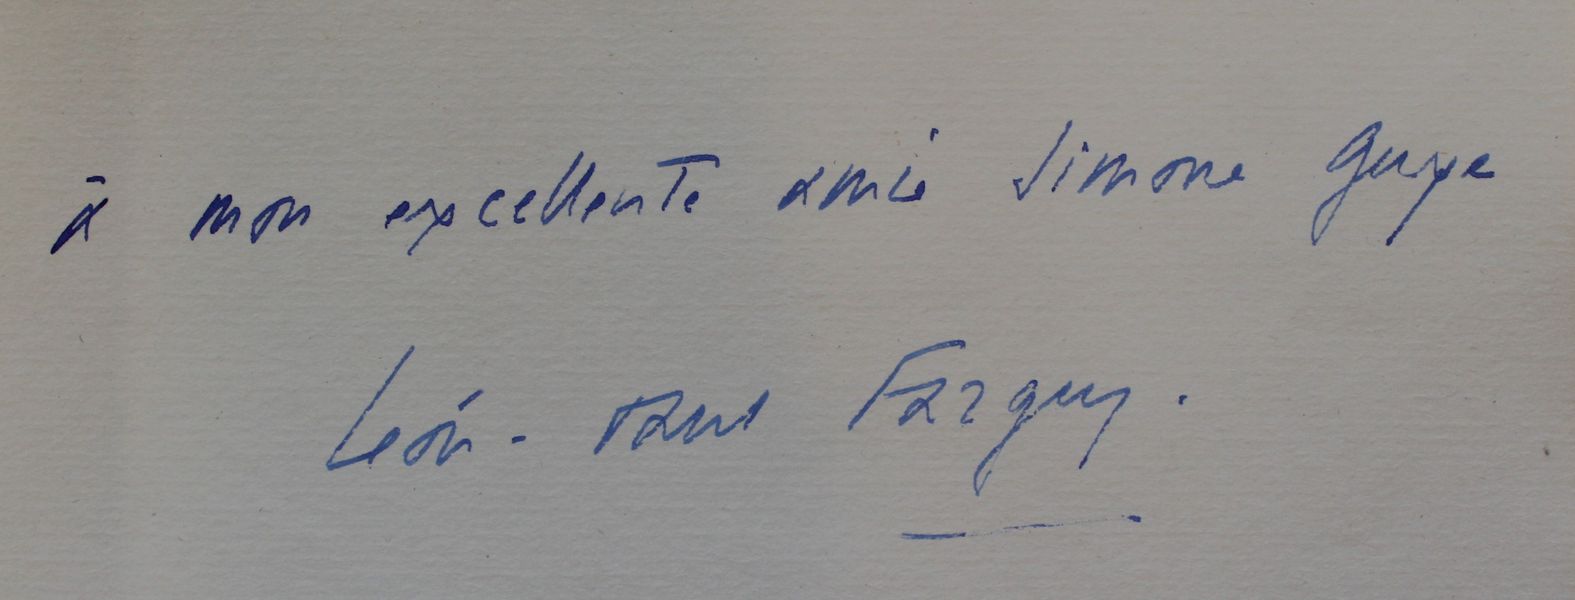 à mon excellente amie Simone Guye
Léon-Paul Fargue.